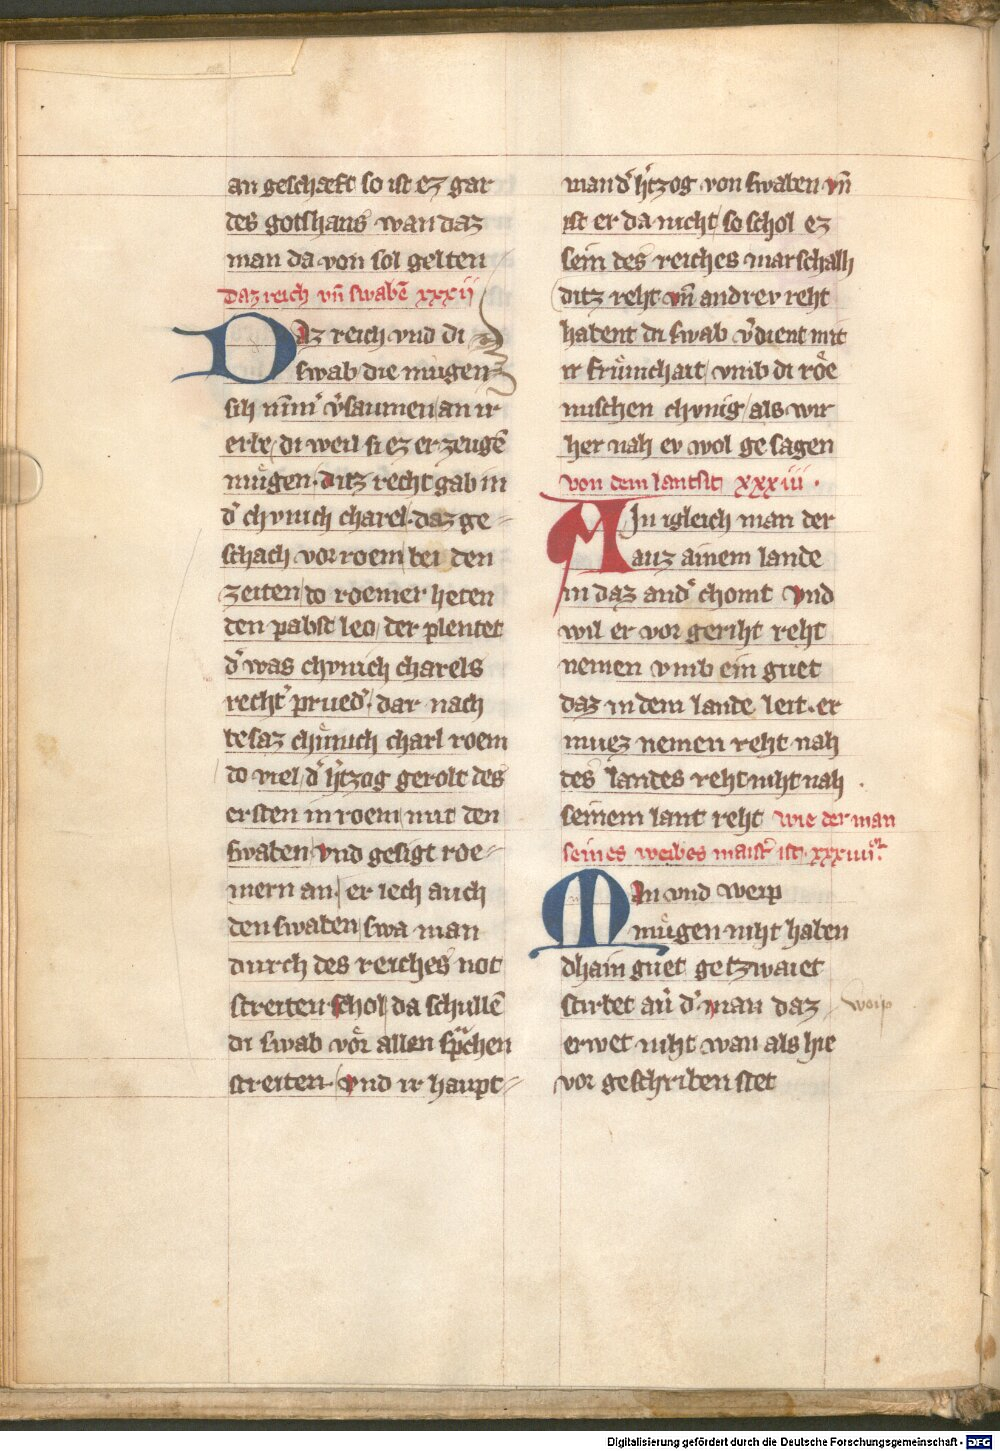 an geschæft so ist ez gar
des gotshaus wan daz
man da von sol gelten
Daz reich vn̄ swabē xxxii
Daz reich vnd di
swab die mügen
sih nim̄ᵉ v̓saumen an ir
erbe di weil si ez er zeugē
mügen. ditz recht gab in
d̓ chvnich charel. daz ge
schach vor roem bei den
zeiten do roemer heten
den pabst leo der plentet
d̓ was chvnich charels
recht̓ prued̓. dar nach
besaz chünich charl roem
do viel d̓ h̓tzog gerolt des
ersten in roem mit den
swaben vnd gesigt roe
mern an er iech auch
den swaben swa man
durch des reiches not
streiten schol da schullē
di swab vor allen sp̄chen
streiten. vnd ir haupt
man d̓ h̓tzog von swaben vn̄
ist er da nicht so schol ez
sein des reiches marschalh
ditz reht vn̄ andrev reht
habent di swab v̓dient mit
ir frümchait vmb di roe
mischen chvnig als wir
her nah ev wol ge sagen
von dem lantsit xxxiii.
AIn igleich man der
auz ainem lande
in daz and̓ chomt vnd
wil er vor geriht reht
nemen vmb ein guet
daz in dem lande leit. er
muez nemen reht nah
des landes reht niht nah
seinem lant reht wie der man
seines weibes maist̓ ist. xxxiiii
MAn vnd weip
mügen niht haben
dhain guet getzwaiet
stirbet au̓ d̓ man daz weip
erbet niht wan als hie
vor geschriben stet
Digitalisierung gefördert durch die Deutsche Forschungsgemeinschaft - DFG